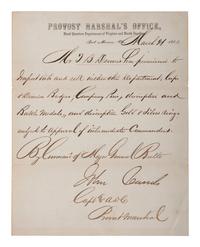 PROVOST MARSHAL'S OFFICE,
Head Quarters Department of Virginia and North Carolina,
Fort Monroe, Va. March 31 186
Mr J. B. is permitted to
import into and sell within this Department, Corps
& Division Badges, Company Pins, descriptive and
Battle Medals, and descriptive Gold & Silver rings
subject to approval of Commandant
By Command of Major General Butler
John Cassels
Capt & ADC
Provost Marshal